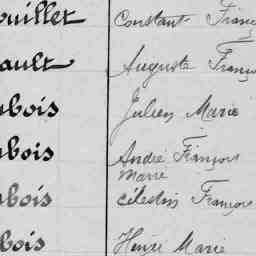 ouillet Constant Franç
ault Auguste Franço
ubois Julien Marie
ubois André François
Marie
ubois Célestin François
bois Henri Marie